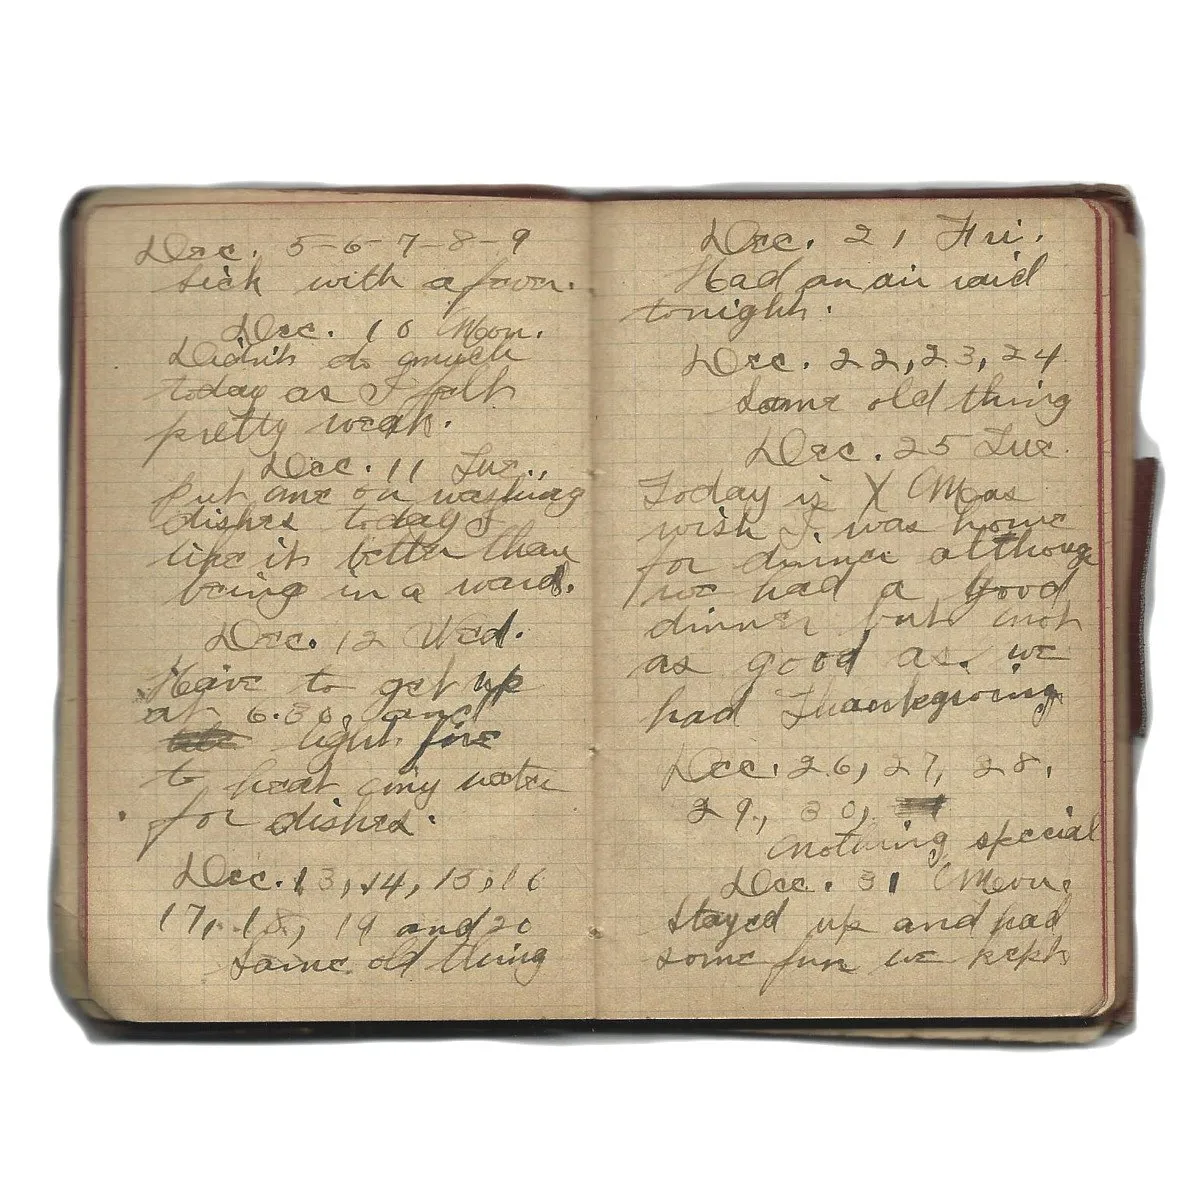 Dec. 5-6-7-8-9
sick with a favor.
Dec. 10 Mon.
Didn't do much
today as I felt
pretty weak.
Dec. 11 Tue.
put me on washing
dishes today I
like it better than
being in a ward.
Dec. 12 Wed.
Have to get up
at 6.30, and
light fire
to heat my water
for dishes.
Dec. 13, 14, 15, 16
17, 18, 19 and 20
Same old thing
Dec. 21 Fri.
Had an air raid
tonight.
Dec. 22, 23, 24
Same old thing
Dec. 25 Tue.
Today is X Mas
wish I was home
for dinner although
we had a good
dinner but not
as good as we
had Thanksgiving
Dec. 26, 27, 28,
29, 30,
nothing special
Dec. 31 Mon.
Stayed up and had
some fun we kept